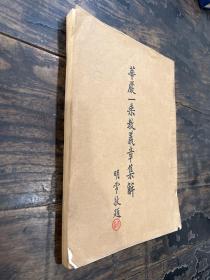 華嚴一乘教義章集解
明常敬題